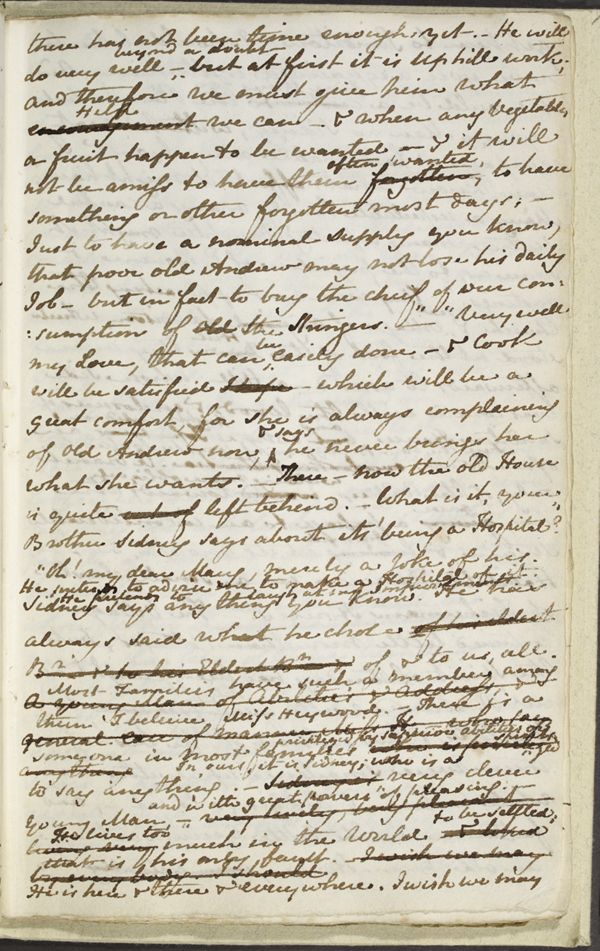 there has not been time enough yet. - He will
beyond a doubt
do very well - but at first it is Uphill work;
and therefore we must give him what
Help
encouragement we can - & when any Vegetable
or fruit happen to be wanted - & it will
often wanted,
not be amiss to have them forgotten, to have
something or other forgotten most days; -
Just to have a nominal supply you know,
that poor old Andrew may not lose his daily
Job - but in fact to buy the cheif of our con:
:sumption of old the Stringers. - " "Very well
be
my Love, that can easily done - & Cook
will be satisfied - which will be a
great comfort, for she is always complaining
& says
of old Andrew now, he never brings her
what she wants. - There - now the old House
is quite out of left behind. - What is it, your
Brother Sidney says about its' being a Hospital?"
"Oh! my dear Mary, merely a Joke of his.
He pretends to advise me to make a Hospital of it.
He pretends to laugh at my Improvements.
Sidney says any thing you know. He has
always said what he chose of his eldest
Br. & to his Eldest Br. of & to us, all.
Most Families have such a member among
A young Man of Abilities & Address,
them I beleive Miss Heywood. - There is a
general
someone in most families privileged by superior abilities or spirits
anything In ours, it is Sidney; who is a
to say anything. - Sidney's very clever
Young Man, - and with great powers of pleasing. -
very lively, very pleasing
He lives too much in the World to be settled;
that is his only fault. - I wish we may
by every body. I should
He is here & there & every where. I wish we may